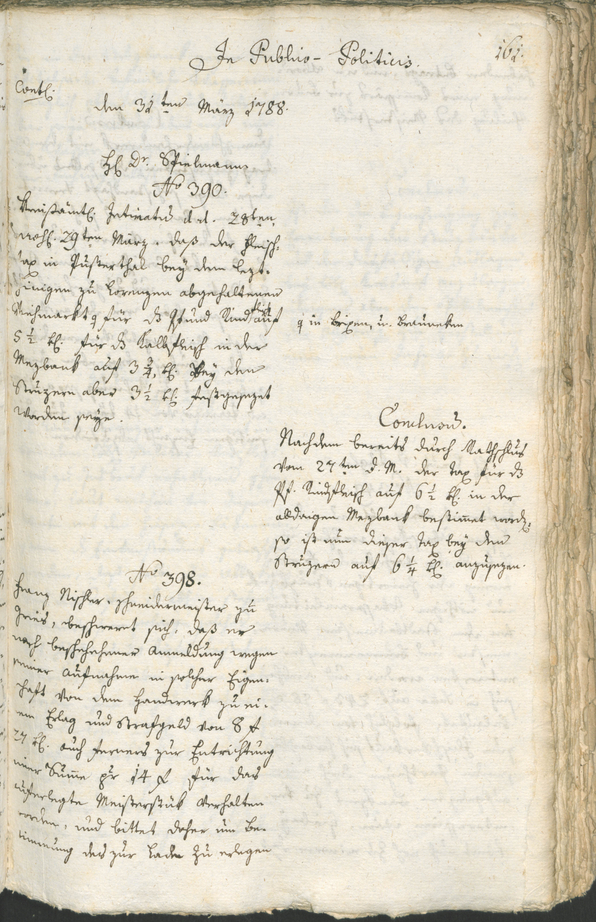 In Publico-Politicis.
161.
Contl:
den 31ten März 1788.
Hl. Dr. Spielmann
No 390.
Kreisämtl. Intimatum d.d. 28ten,
29ten März, daß der Fleisch-
tax in Pusterthal bey dem lezt-
hinigen zu Lorenzen abgehaltenen
Viehmarkt für das Pfund Rindfleisch auf
in Brixen, u. Brauneken
5 1/2 kr. für das Kalbfleisch in der
Mezbank auf 3 3/4 kr. Bey den
Strizern aber 3 1/2 kr. festgesezet
worden seye.
Conclusum.
Nachdem bereits durch Rathschluß
vom 27ten d. M. der Tax für das
Pf. Rindfleisch auf 6 1/2 kr. in der
aldaigen Mezbank bestimet worden,
so ist nun dieser Tax bey den
Strizern auf 6 1/4 kr. anzusezen.
No 398.
Franz Nishler, Schneidermeister zu
Gries, beschweret sich, daß er
nach beschehener Anmeldung wegen
seiner Aufnahme in solcher Eigen-
schaft von dem Handwerk zu ei-
nem Erlag und Strafgeld von 8 f
27 kr. auch ferners zur Entrichtung
einer Sume pr 14 f für das
auferlegte Meisterstük verhalten
worden, und bittet daher um Be-
stimmung des zur Lade zu erlegen